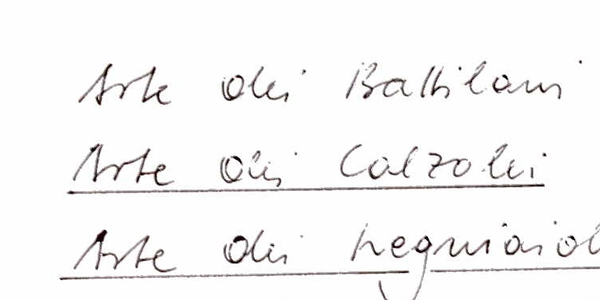 Arte dei Battilani
Arte dei Calzolai
Arte dei